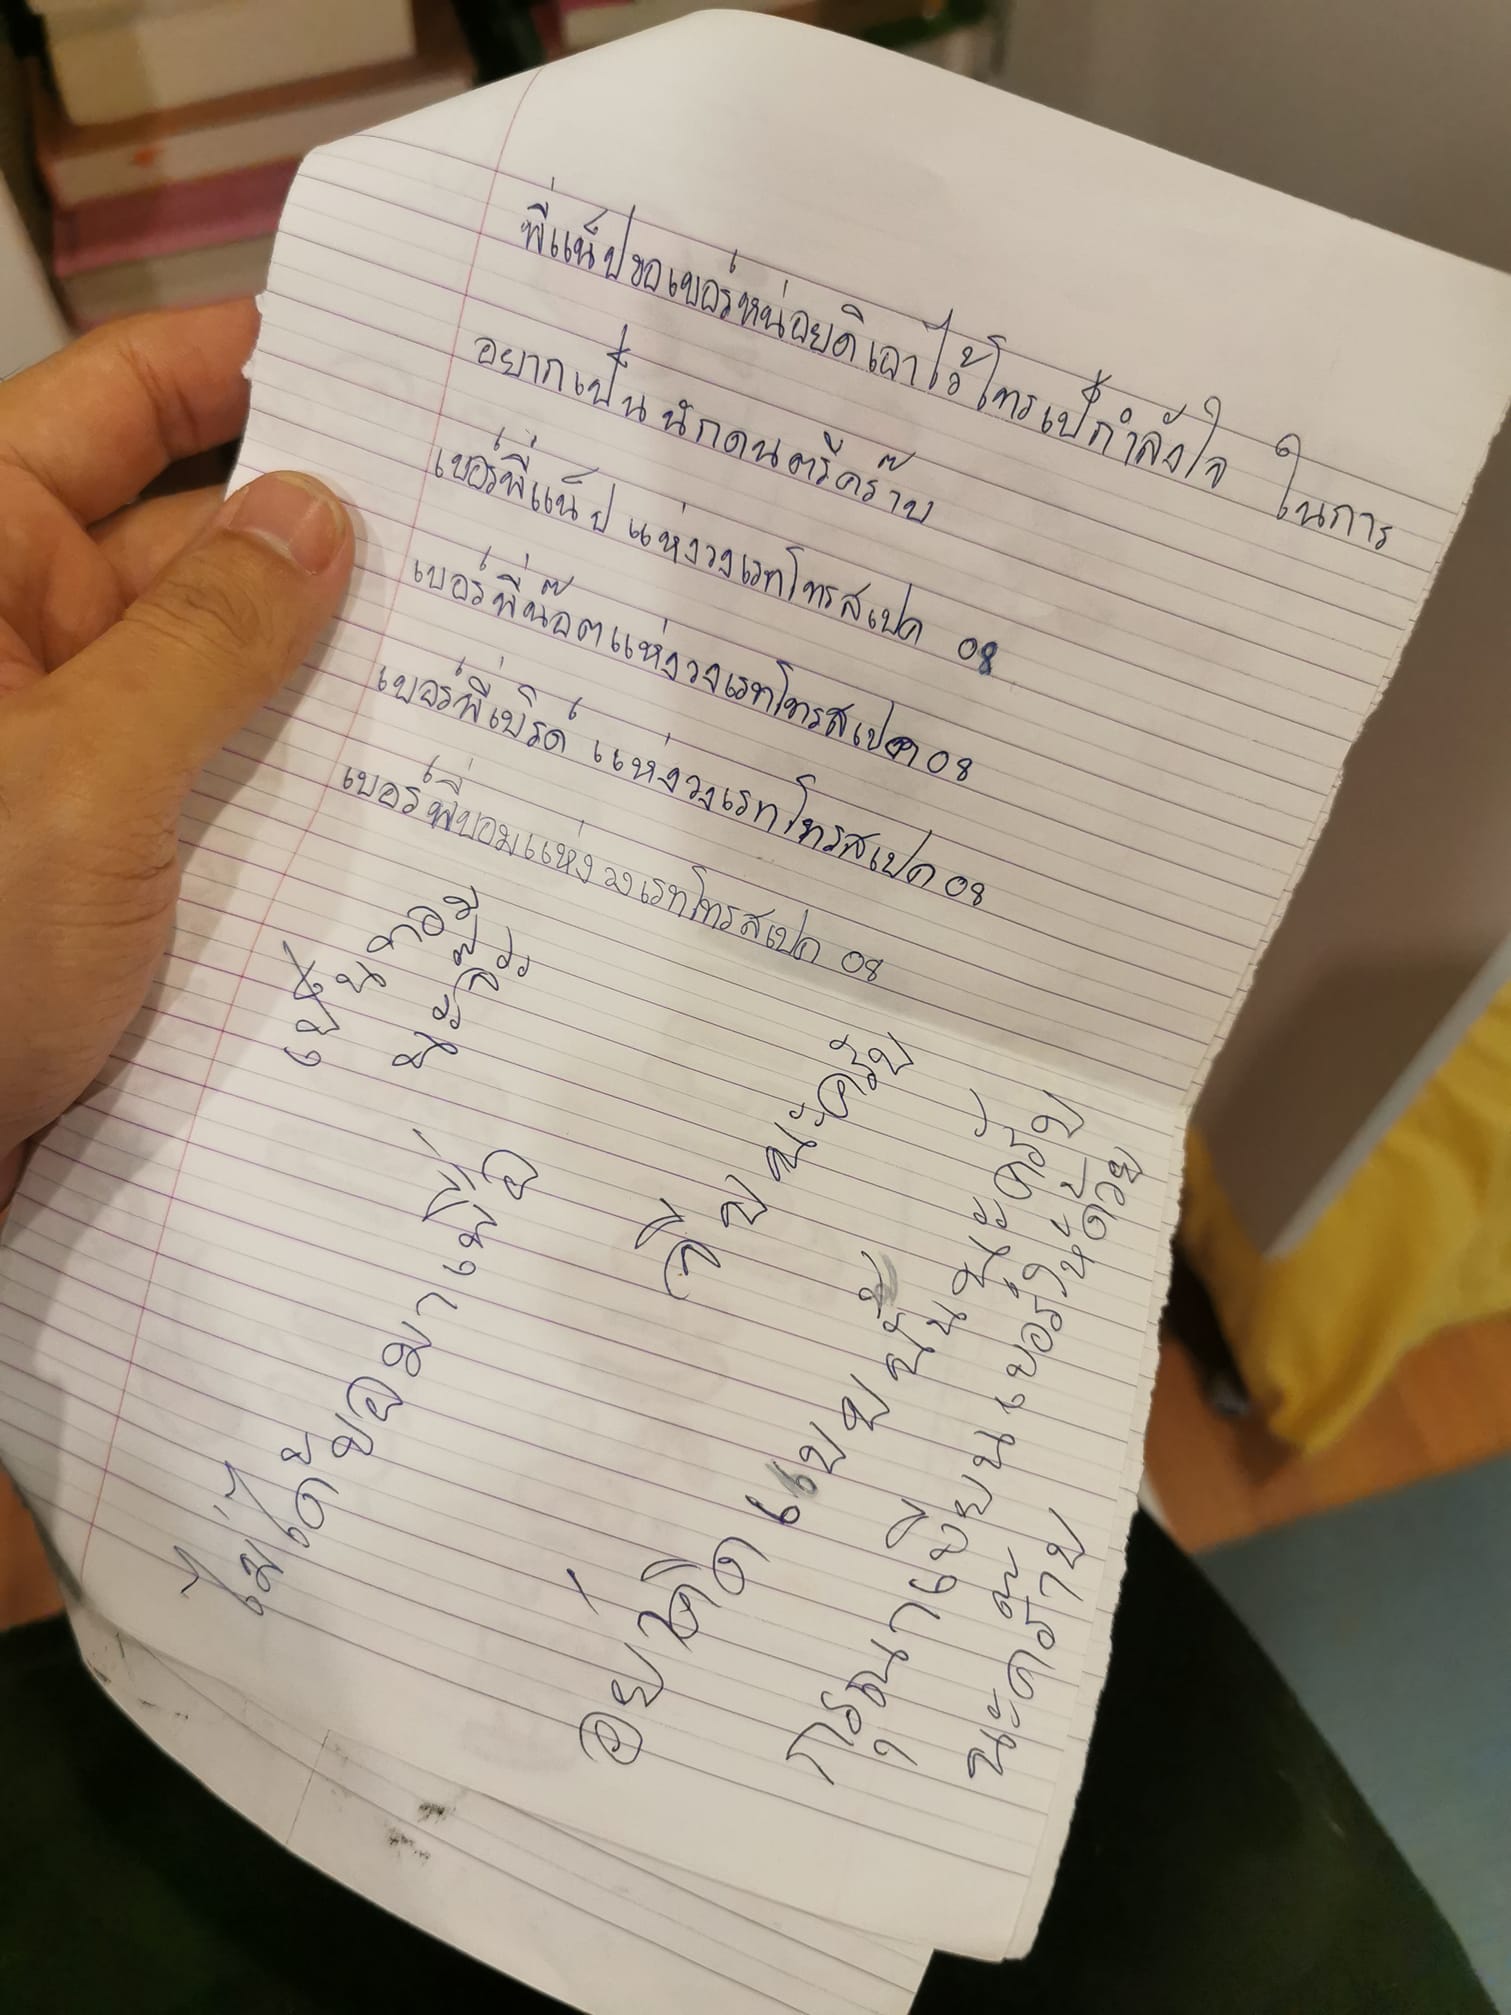 พี่แน็ปขอเบอร์หน่อยดิเอาไว้โทรเป็กำลังใจ ในการ
อยากเป็นนักดนตรีคร๊าบ
เบอร์พี่แน็ป แห่งวงเรทโทรสเปค 08
เบอร์พี่น๊อตแห่งวงเรทโทรสเปค 08
เบอร์พี่เบิร์ด แห่งวงเรทโทรสเปค 08
เบอร์พี่บอมแห่งวงเรทโทรสเปค 08
ทอมี
นะ
ไม่ได้ขอมาเพื่อ
จีบนะครับ
อย่าคิดแบบนั้นนะครับ
กรุณาเขียนเบอร์ให้ด้วย
นะคร๊าบ